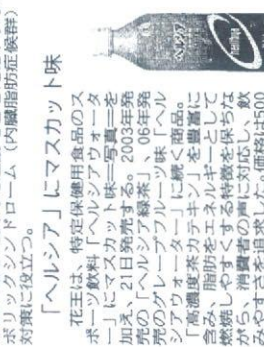 ボリックシンドローム(内臓脂肪症候群)
対策に役立つ。
「ヘルシア」にマスカット味
花王は、特定保健用食品のス
ポーツ飲料「ヘルシアウォータ
ー」にマスカット味=写真=を
加え、21日発売する。2003年発
売の「ヘルシア緑茶」、06年発
売のグレープフルーツ味「ヘル
シアウォーター」に続く商品。
「高濃度茶カテキン」を豊富に
含み、脂肪をエネルギーとして
燃焼しやすくする特徴を保ちな
がら、消費者の声に対応し、飲
みやすさを追求した。価格は500